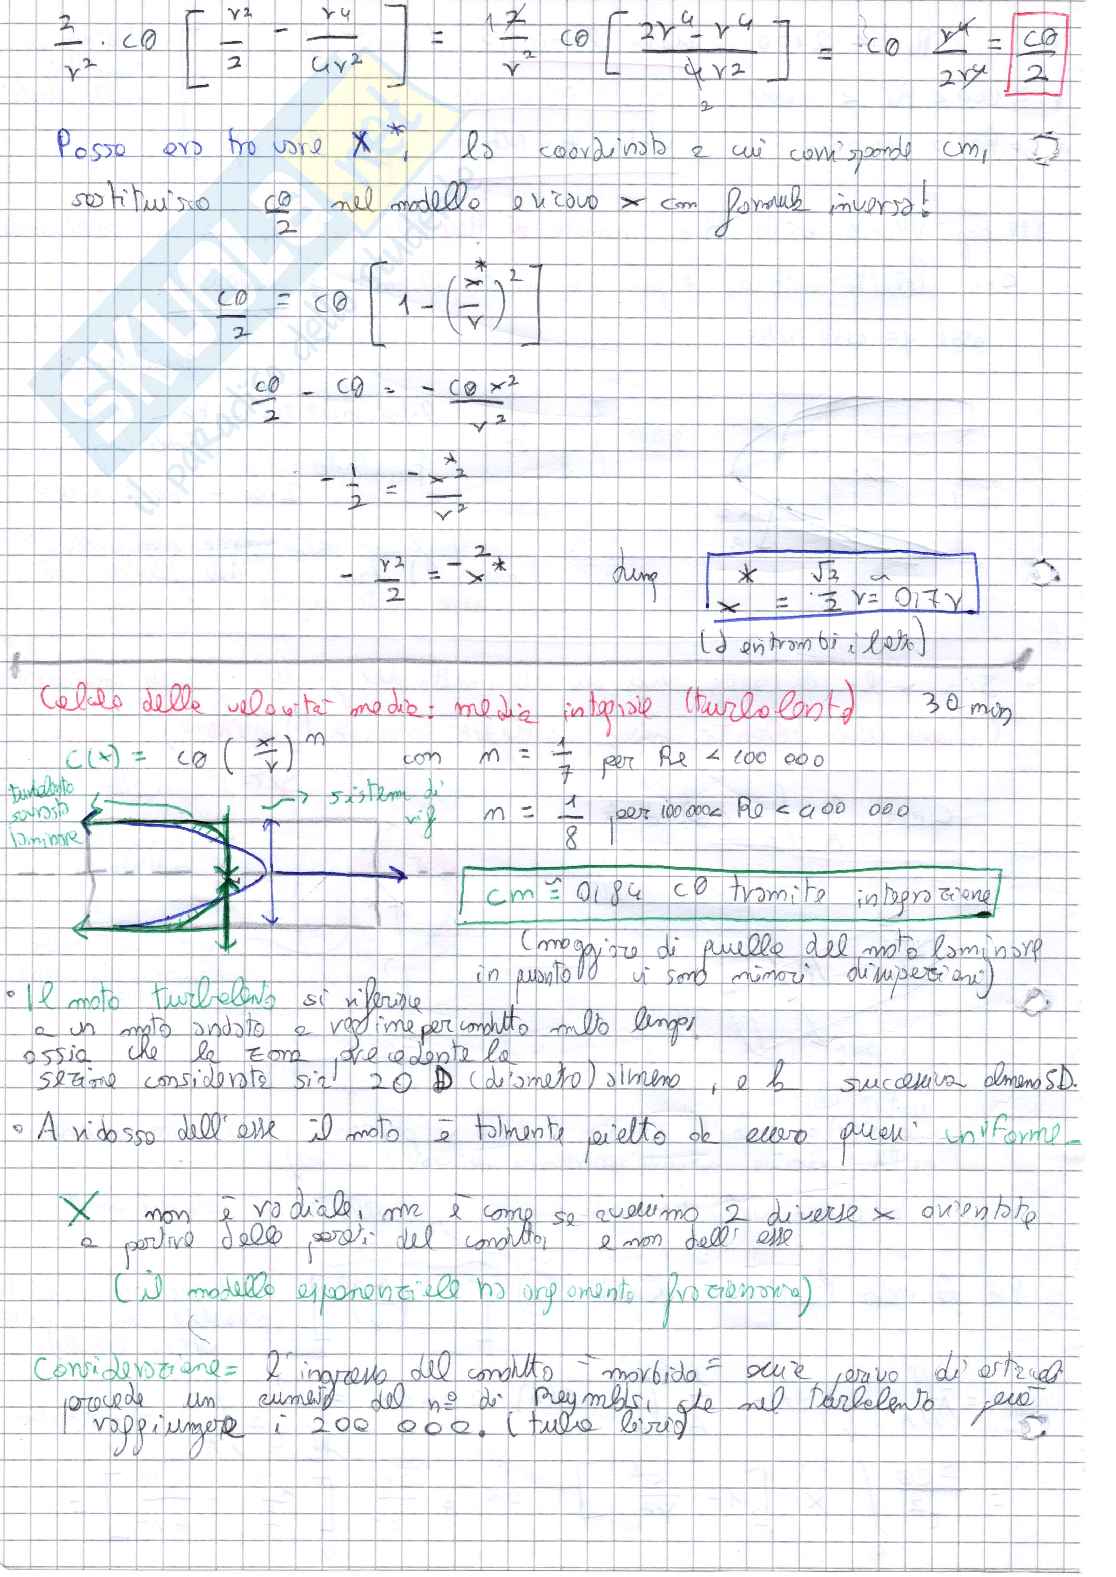 2/r² · c0 [ r²/2 - r4/4r² ] = 2/r² c0 [ 2r4 - r4 / 4r2 ] = c0 r4/2r4 = c0/2
Posso ora trovare x*, la coordinata a cui corrisponde cm,
sostituisco c0/2 nel modello e ricavo x con formula inversa!
c0/2 = c0 [ 1 - (x*/r)² ]
c0/2 - c0 = - c0 x²/r²
- 1/2 = - x*²/r²
- r²/2 = - x²*
x* = √2/2 r ≅ 0,7 r
(da entrambi i lati)
Calcolo della velocità media: media integrale (turbolento) 30 min
C(x) = c0 (x/r)^m con m = 1/7 per Re < 100 000
turbolento
sistemi di
rif
laminare
m = 1/8 per 100 000 < Re < 400 000
cm ≅ 0,84 c0 tramite integrazione
(maggiore di quella del moto laminare
in quanto vi sono minori dissipazioni)
• Il moto turbolento si riferisce
a un moto andato a regime per condotto molto lungo,
ossia che la zona precedente la
sezione considerata sia 20 D (diametro) almeno, e la successiva almeno 5D.
• A ridosso dell'asse il moto è talmente piatto da essere quasi uniforme
X non è radiale, ma è come se avessimo 2 diverse x orientate
a partire dalle pareti del condotto, e non dall'asse
(il modello esponenziale ha argomento frazionario)
Considerazione = l'ingresso del condotto "morbido" privo di
procede un aumento del n° di Reynolds, che nel turbolento può
raggiungere i 200 000. (tubo liscio
SKUOLA.net
il paradiso dello studente